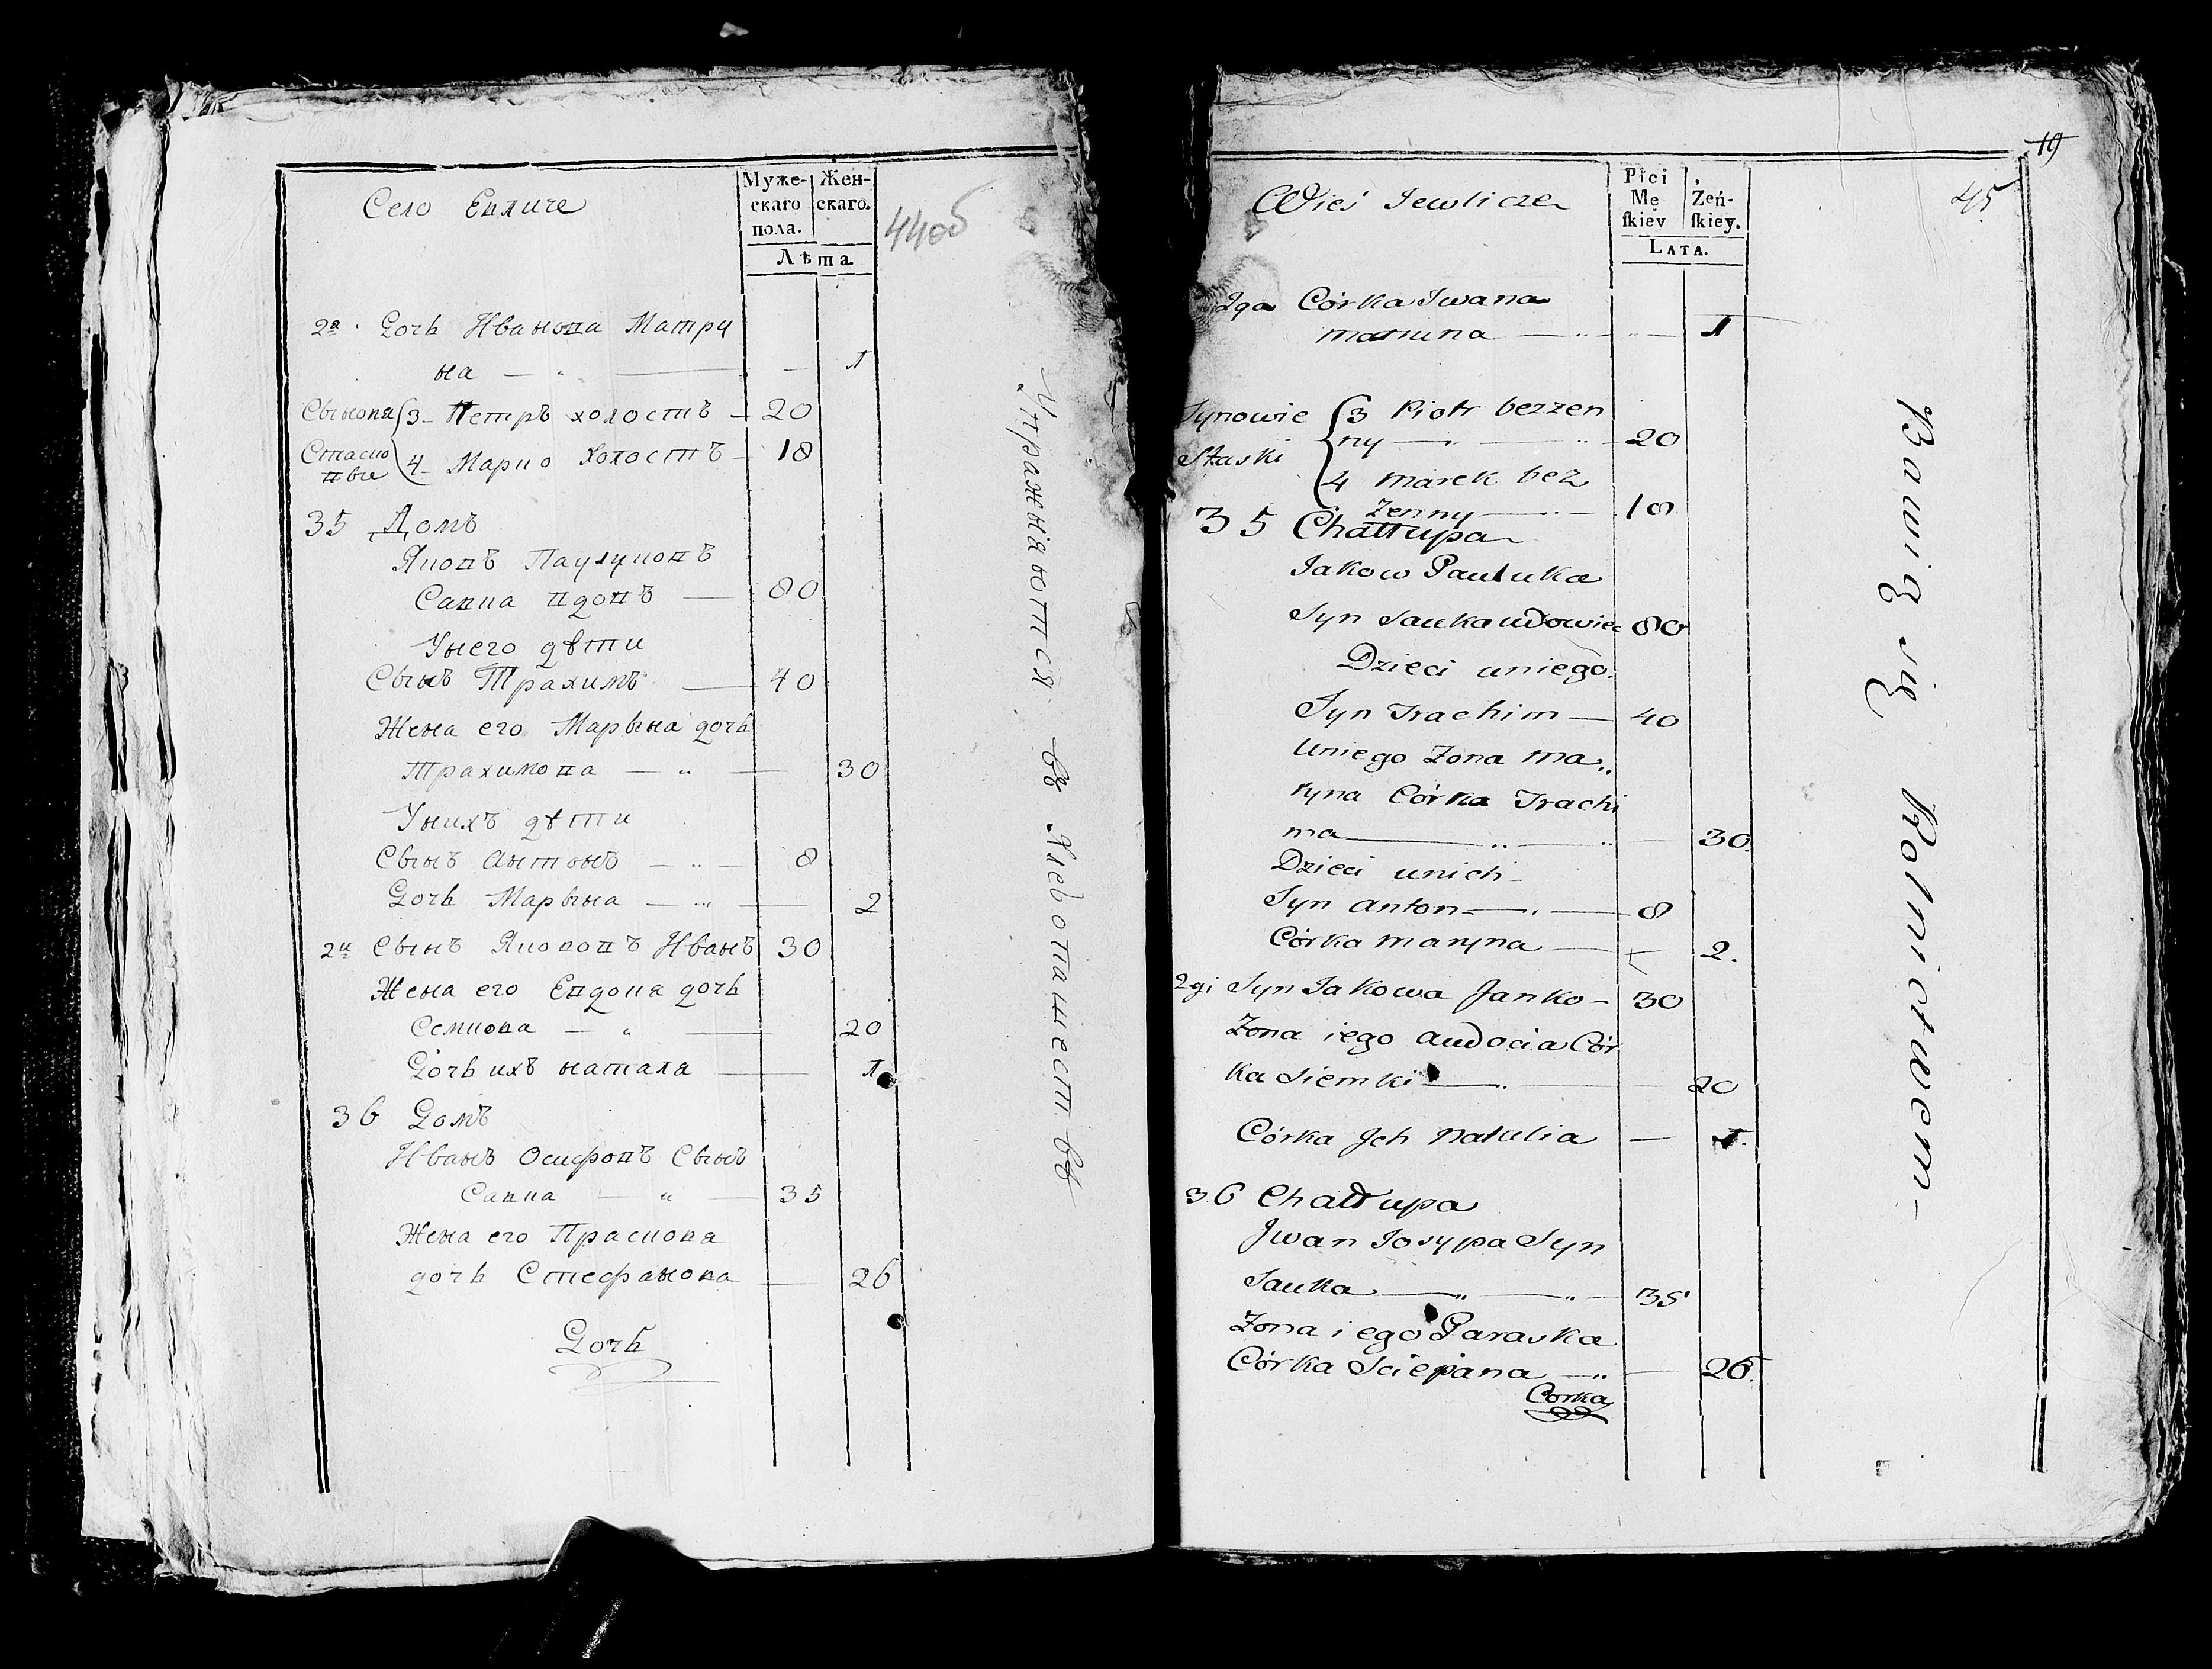 Село Евличе
Муже-
скаго
пола.
Жен-
скаго.
Лѣта.
44об
2я Дочь Иванова Матру
на — „ — 1
Сынове 3 Петръ холостъ — 20
Стаско
вые 4 Марко холостъ — 18
35 Домъ
Яковъ Паулуковъ
Савка вдовъ — 80
У него дѣти
Сынъ Трахимъ — 40
Жена его Марына дочь
Трахимова — „ — 30
У нихъ дѣти
Сынъ Антонъ — „ — 8
Дочь Марына — „ — 2
2й Сынъ Якововъ Иванъ 30
Жена его Евдокя дочь
Семкова — „ — 20
Дочь ихъ натала — 1
36 Домъ
Иванъ Осифовъ Сынъ
Савка — „ — 35
Жена его Праскова
дочь Стефанова — 26
Дочь
Упражняются въ Хлебопашествѣ
19
45
Wieś Jewlicze
Płci
Mę
skiey
Żeń-
skiey.
LATA.
2ga Córka Jwana
matruna — „ — 1
Synowie 3 Piotr bezżen
ny — „ — 20
Staski
4 marek bez
żenny — 18
35 Chałłupa
Jakow Pauluka
Syn Sauka wdowiec 80
Dzieci uniego.
Syn Trachim — 40
Uniego Żona ma„
ryna Córka Trachi
ma — „ — 30.
Dzieci unich
Syn anton — „ — 8
Córka maryna — 2.
2gi Syn Jakowa Janko — 30
Żona iego audocia Cór
ka Siemki — 20
Córka Jch Natalia — 1.
36 Chałłupa
Jwan Josypa Syn
Sauka — „ — „ — 35
Żona iego Paraska
Córka Sciepana — „ — 26.
Corka
Bawią się Rolnictwem